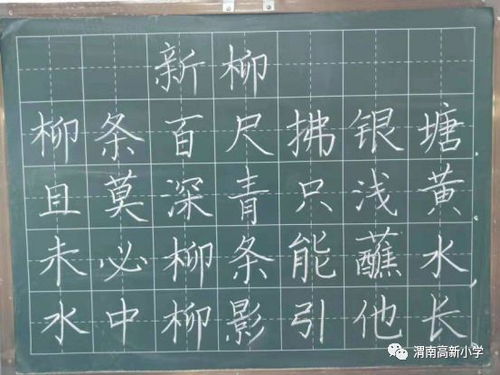 新柳
柳条百尺拂银塘
且莫深青只浅黄
未必柳条能蘸水
水中柳影引他长
渭南高新小学